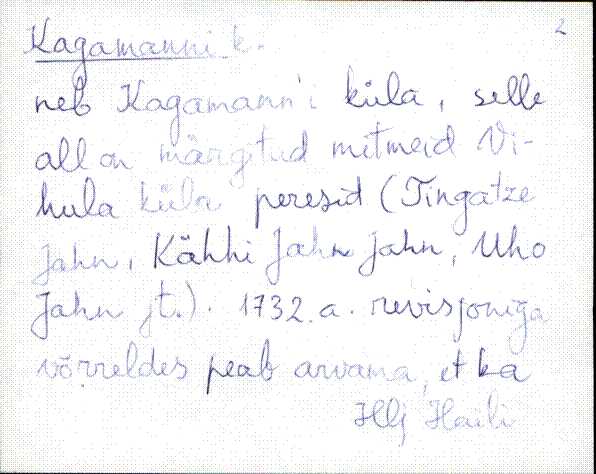 2
Kagamanni k.
neb Kagamann'i küla, selle
all on märgitud mitmeid Vi-
hula küla peresid (Tingatze
Jahn, Kähhi Jahn Jahn, Uho
Jahn jt.). 1732.a. revisjoniga
võrreldes peab arvama, et ka